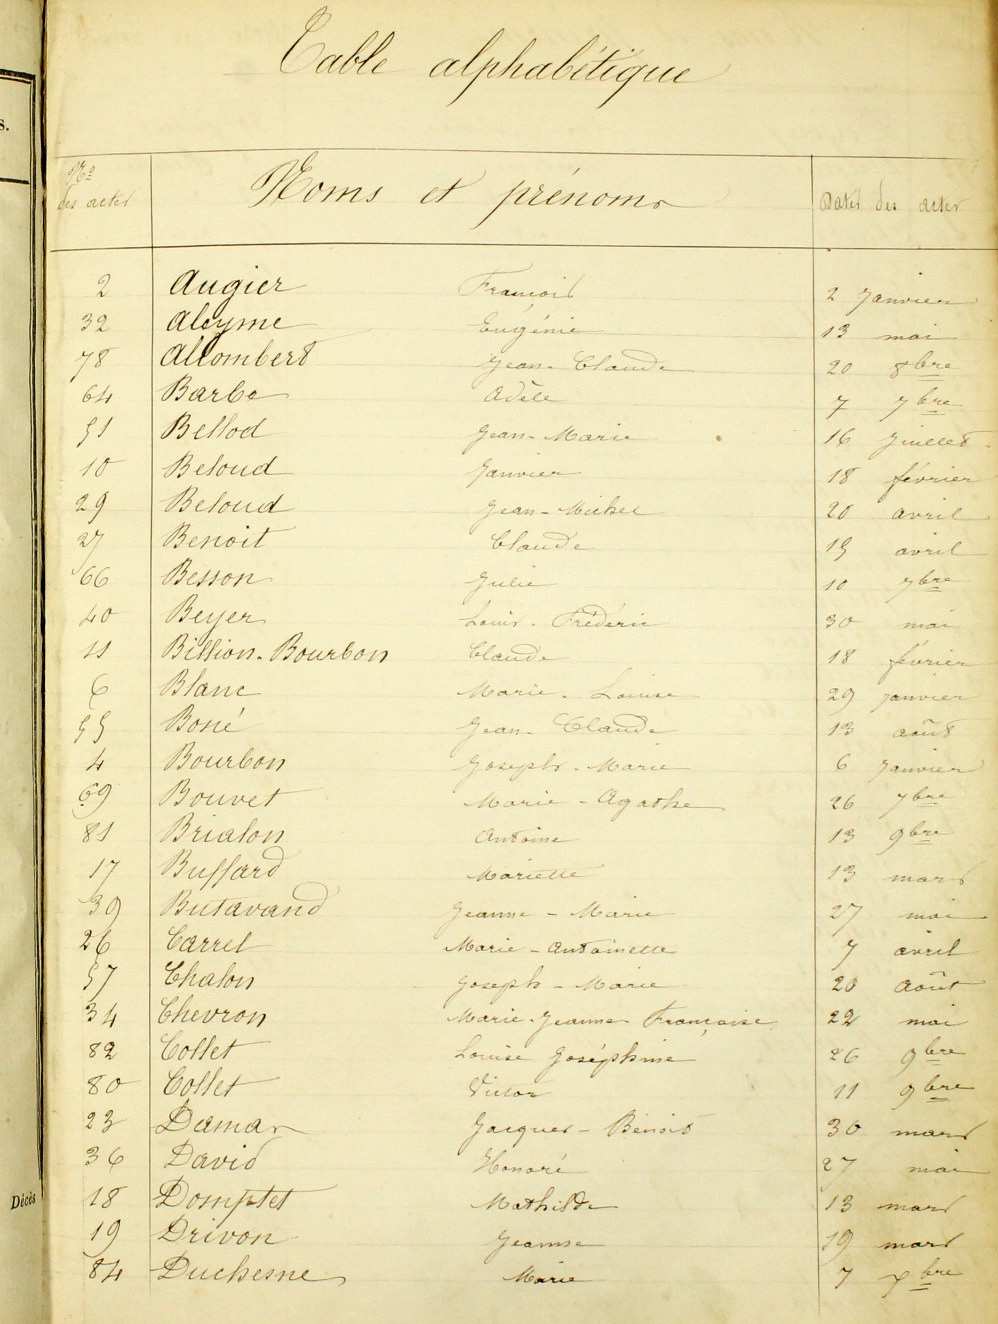 Table alphabétique
Nos des actes Noms et prénoms Dates des actes
2 Augier François 2 Janvier
32 Aleyme Eugénie 13 mai
78 Allombert Jean-Claude 20 8bre
64 Barbe Adèle 7 7bre
51 Bellod Jean-Marie 16 Juillet
10 Beloud Janvier 18 février
29 Beloud Jean-Michel 20 avril
27 Benoit Claude 15 avril
66 Besson Julie 10 7bre
40 Beyer Louis-Frédéric 30 mai
11 Billion-Bourbon Claude 18 février
6 Blanc Marie-Louise 29 janvier
55 Boné Jean-Claude 13 août
4 Bourbon Joseph-Marie 6 Janvier
69 Bouvet Marie-Agathe 26 7bre
81 Brialon Antoine 13 9bre
17 Buffard Mariette 13 mars
39 Butavand Jeanne-Marie 27 mai
26 Carrel Marie-Antoinette 7 avril
57 Chalon Joseph-Marie 20 Août
34 Chevron Marie-Jeanne-Françoise 22 mai
82 Collet Louise Joséphine 26 9bre
80 Collet Victor 11 9bre
23 Damas Jacques-Benoit 30 mars
36 David Honoré 27 mai
18 Domptet Mathilde 13 mars
19 Drivon Jeanne 19 mars
84 Duchesne Marie 7 xbre
s.
Décès